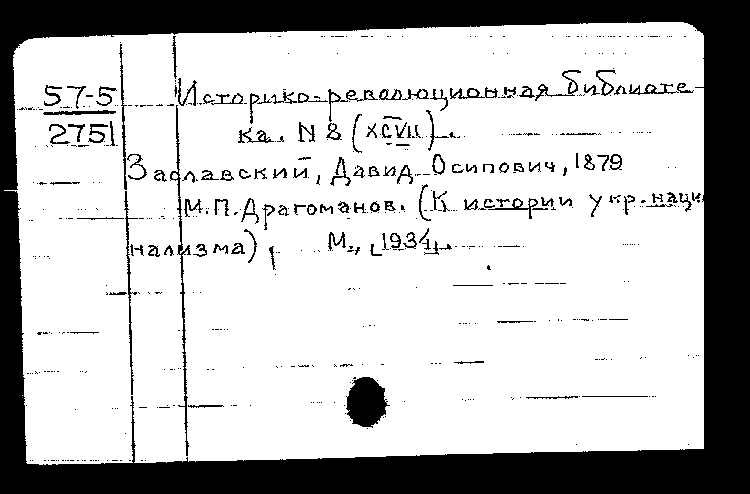 57-5
2751
Историко-революционная библиоте
ка. N 8 (XCVII).
Заславский, Давид Осипович, 1879
М.П.Драгоманов. (К истории укр.наци
нализма), М., [1934].